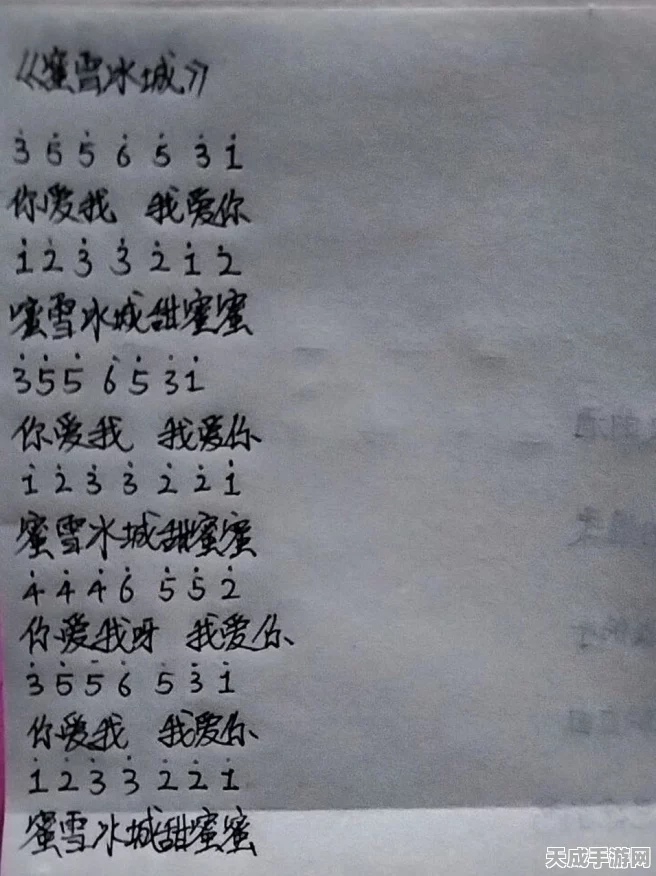 《蜜雪冰城》
3̇ 5̇ 5̇ 6̇ 5̇ 3̇ 1̇
你爱我 我爱你
1̇ 2̇ 3̇ 3̇ 2̇ 1̇ 2̇
蜜雪冰城甜蜜蜜
3̇ 5̇ 5̇ 6̇ 5̇ 3̇ 1̇
你爱我 我爱你
1̇ 2̇ 3̇ 3̇ 2̇ 2̇ 1̇
蜜雪冰城甜蜜蜜
4̇ 4̇ 4̇ 6̇ 5̇ 5̇ 2̇
你爱我呀 我爱你
3̇ 5̇ 5̇ 6̇ 5̇ 3̇ 1̇
你爱我 我爱你
1̇ 2̇ 3̇ 3̇ 2̇ 2̇ 1̇
蜜雪冰城甜蜜蜜
天成手游网